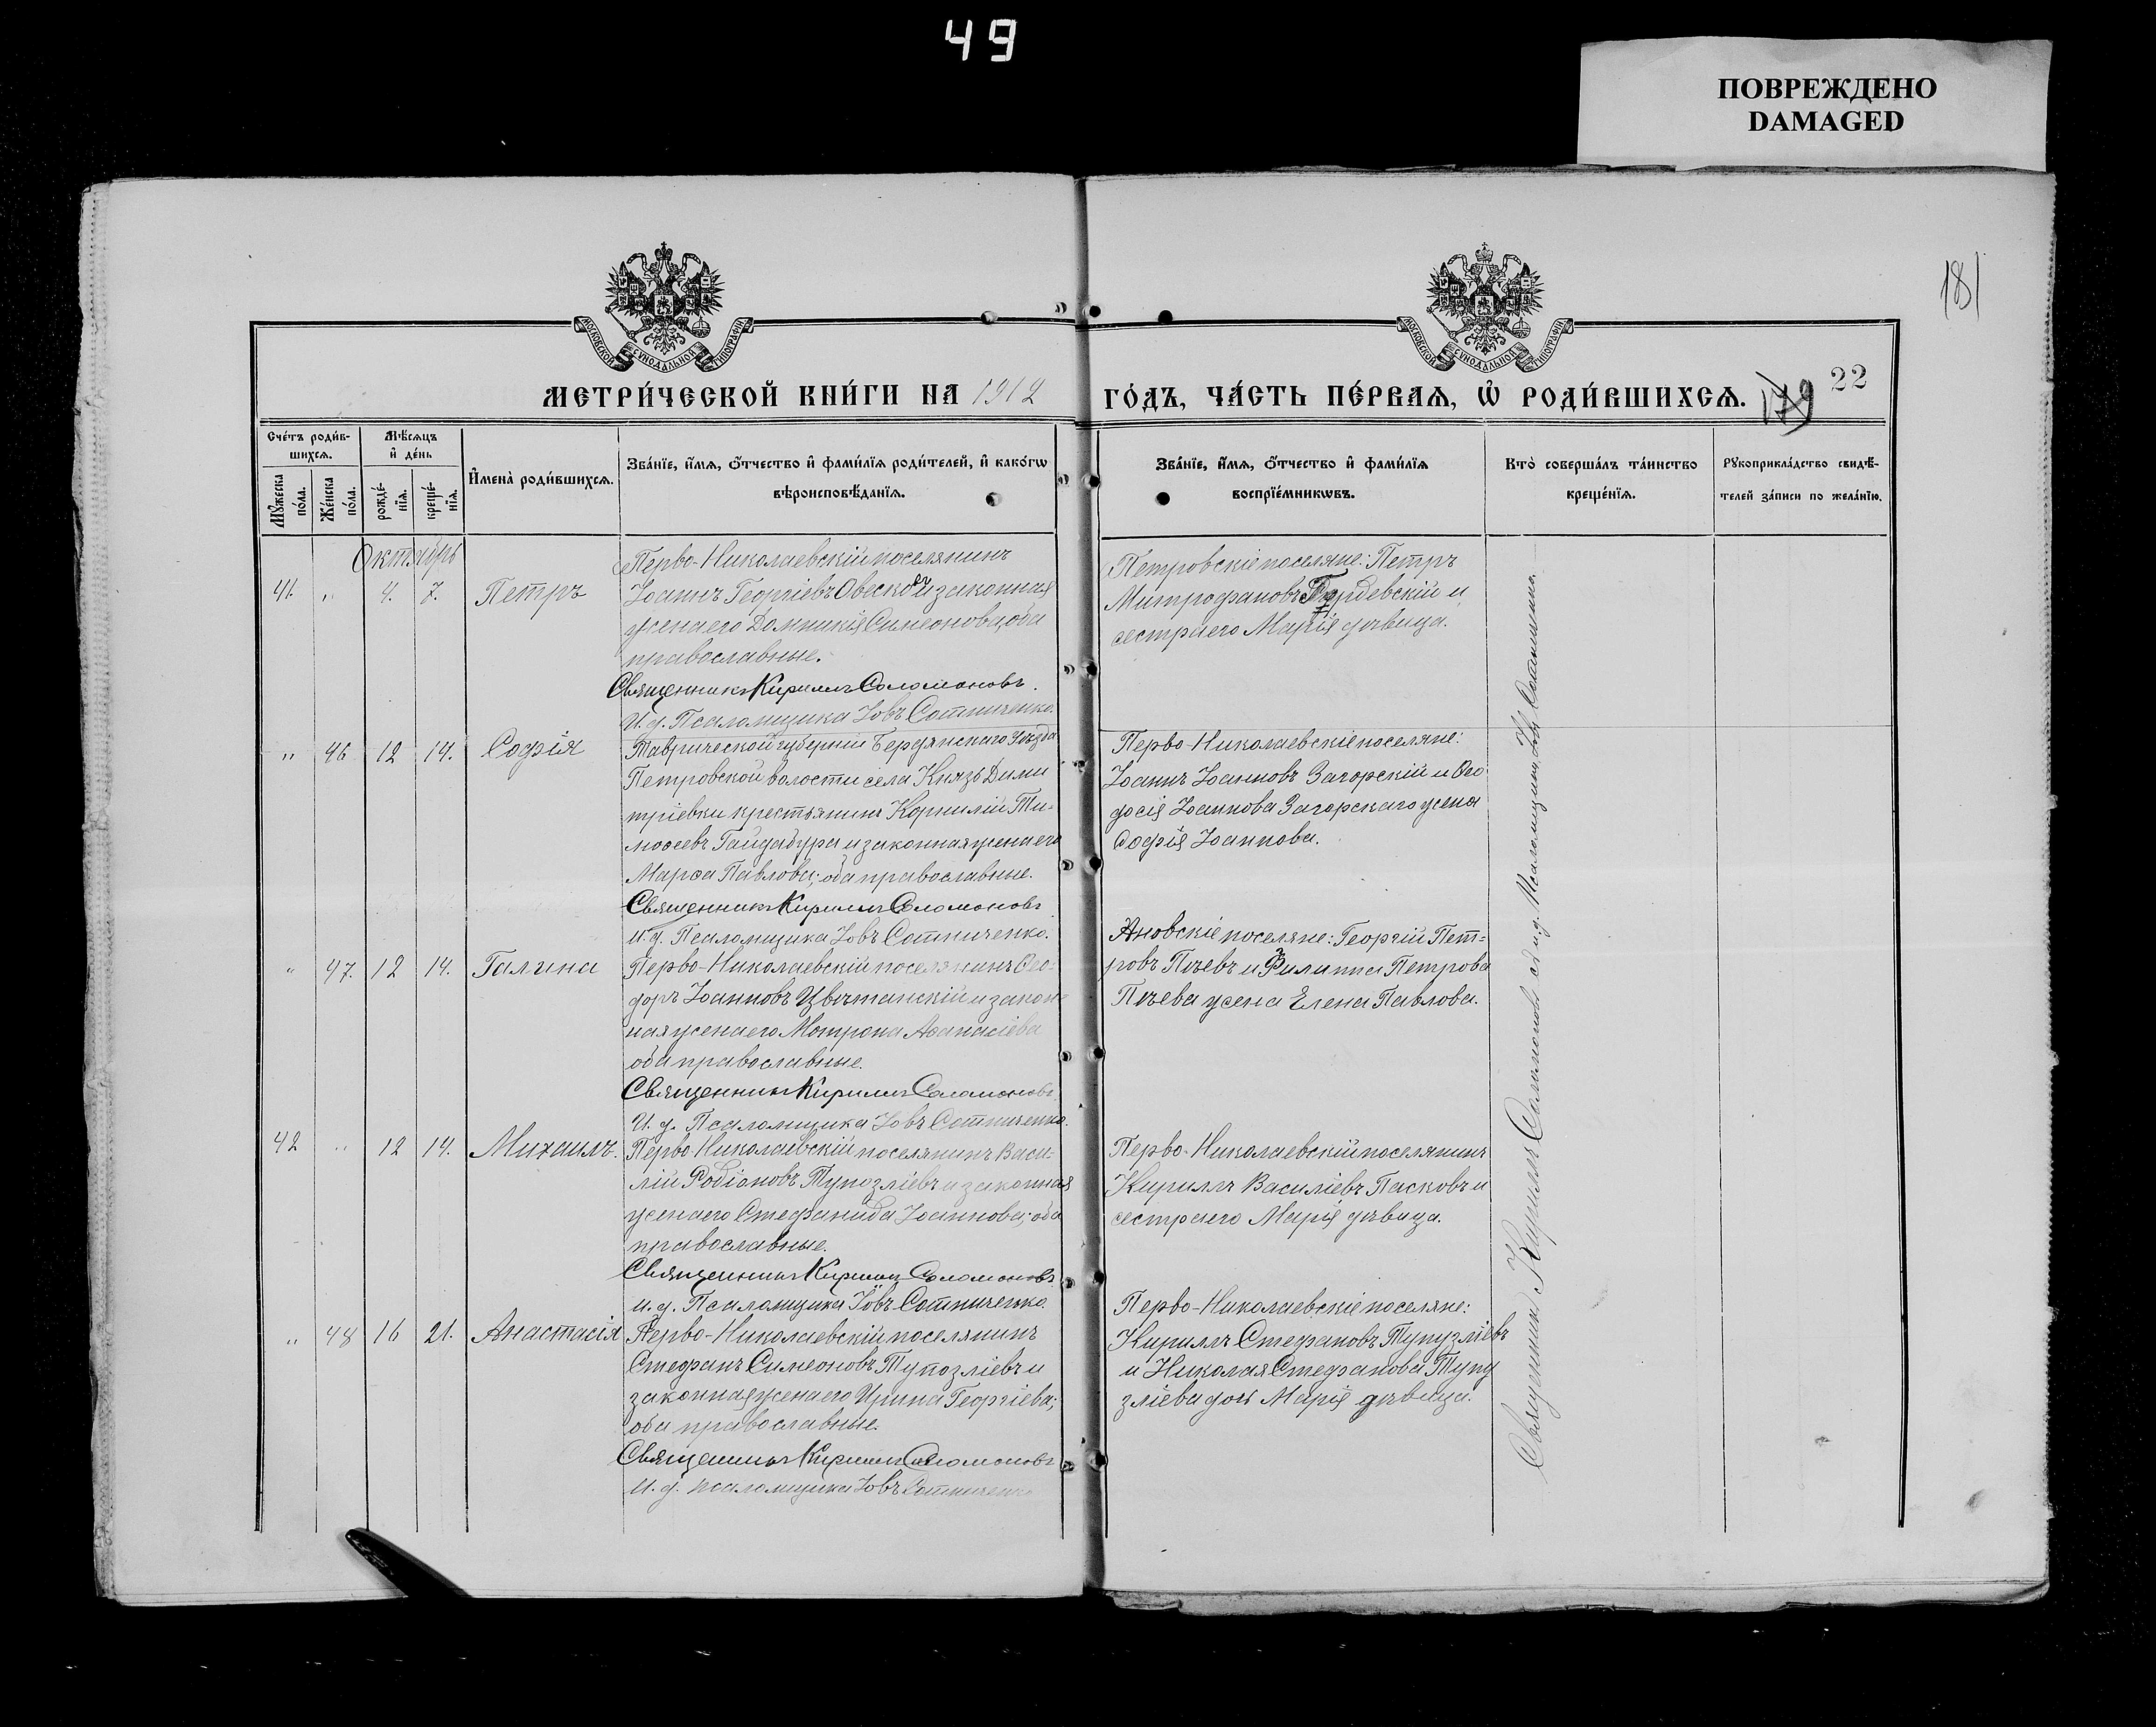 49
ПОВРЕЖДЕНО
DAMAGED
181
МОСКОВСКОЙ СѴНОДАЛЬНОЙ ТИПОГРАФІИ
МОСКОВСКОЙ СѴНОДАЛЬНОЙ ТИПОГРАФІИ
МЕТРИ́ЧЕСКОЙ КНИ́ГИ НА 1912 ГО́ДЪ, ЧА́СТЬ ПЕ́РВАЯ, Ѡ РОДИ́ВШИХСЯ.
179
22
Сче́тъ роди́в-
шихсѧ.
Мꙋ́жеска
по́ла.
Же́нска
по́ла.
Мѣ́сѧцъ
и҆ де́нь
рожде́-
нїѧ.
креще́-
нїѧ.
И҆мена̀ роди́вшихсѧ.
Зва́нїе, и҆́мѧ, ѻ҆́тчество и҆ фами́лїѧ роди́телей, и҆ како́гѡ
вѣроисповѣ́данїѧ.
Зва́нїе, и҆́мѧ, ѻ҆́тчество и҆ фами́лїѧ
воспрїе́мникѡвъ.
Кто̀ соверша́лъ та́инство
креще́нїѧ.
Рꙋкоприкла́дство свидѣ́-
телей за́писи по жела́нїю.
Октябрь
41. " 4. 7. Петръ
Перво-Николаевскій поселянинъ
Іоаннъ Георгіевъ Овесковъ и законная
жена его Домникія Симеонова, оба
православные.
Священникъ Кириллъ Соломоновъ.
И. д. Псаломщика Іовъ Сотниченко.
Петровскіе поселяне: Петръ
Митрофановъ и
сестра его Марія дѣвица.
" 46 12 14. Софія
Таврической губерніи Бердянскаго Уѣзда
Петровской волости села Князь Дими
тріевки крестьянинъ Корнилій Ти-
моѳеевъ Гайдабура и законная жена его
Марѳа Павлова; оба православные.
Священникъ Кириллъ Соломоновъ
И. д. Псаломщика Іовъ Сотниченко.
Перво-Николаевскіе поселяне:
Іоаннъ Іоанновъ Загорскій и Ѳео
досія Іоаннова Загорскаго жена
Софія Іоаннова.
" 47. 12 14. Галина
Перво-Николаевскій поселянинъ Ѳео-
доръ Іоанновъ Цвѣтанскій и закон-
ная жена его Мотрона Аѳанасіева
оба православные.
Священникъ Кириллъ Соломоновъ
И. д. Псаломщика Іовъ Сотниченко.
Ановскіе поселяне: Георгій Пет=
ровъ Пѣевъ и Филиппа Петрова
Пѣева жена Елена Павлова.
42 " 12 14. Михаилъ.
Перво-Николаевскій поселянинъ Васи-
лій Родіоновъ Тупозліевъ и законная
жена его Стефанида Іоаннова; оба
православные.
Священникъ Кириллъ Соломоновъ
И. д. Псаломщика Іовъ Сотниченко.
Перво-Николаевскій поселянинъ
Кириллъ Василіевъ Пасковъ и
сестра его Марія дѣвица.
" 48 16 21. Анастасія
Перво-Николаевскій поселянинъ
Стефанъ Симеоновъ Тупозліевъ и
законная жена его Ирина Георгіева;
оба православные.
Священникъ Кириллъ Соломоновъ
И. д. псаломщика Іовъ Сотниченко
Перво-Николаевскіе поселяне:
Кириллъ Стефановъ Тупузліевъ
и Николая Стефанова Тупу
зліева дочь Марія дѣвица.
Священникъ Кириллъ Соломоновъ съ и. д. Псаломщика Іовъ Сотниченко.